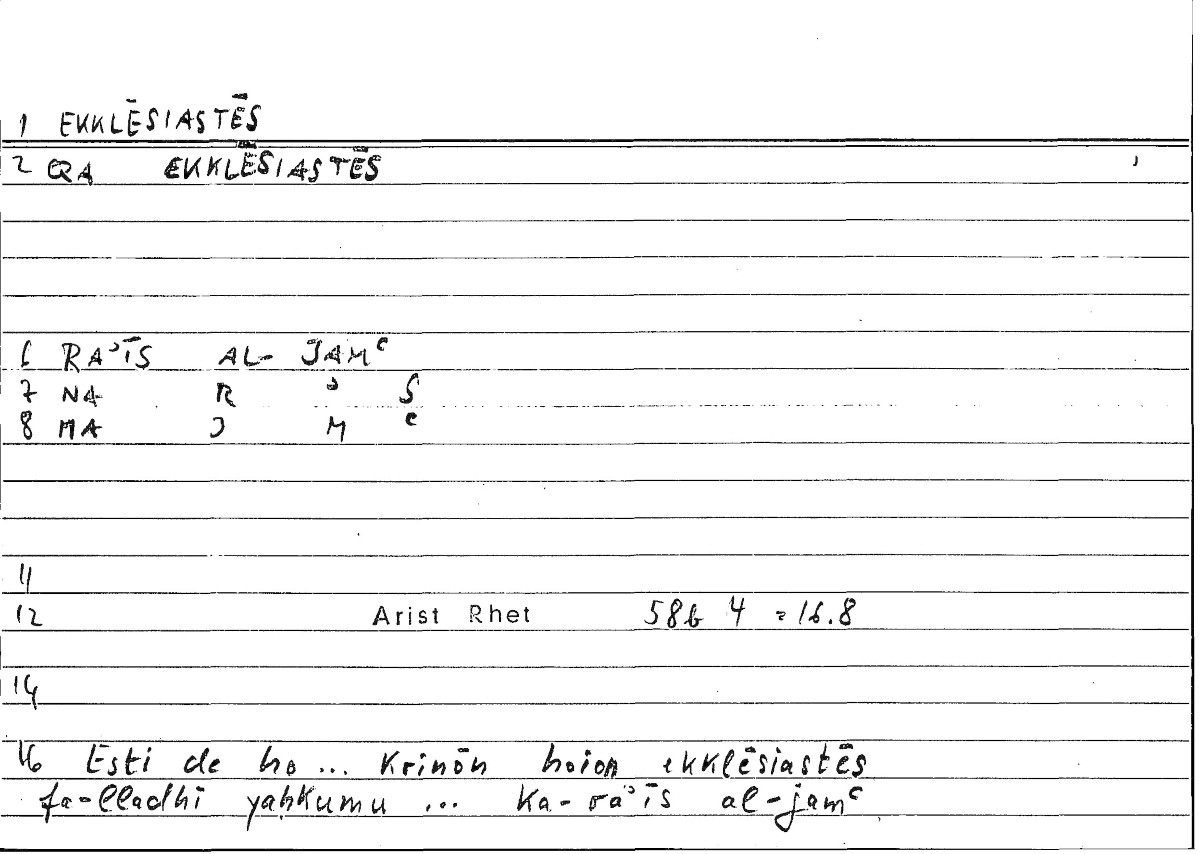 1 EKKLĒSIASTĒS
2 QA EKKLĒSIASTĒS
6 RAʾĪS AL- JAMʿ
7 NA R ʾ S
8 MA J M ʿ
11
12 Arist Rhet 58b 4 = 16.8
14
16 Esti de ho ... krinōn hoion ekklēsiastēs
fa-lladhī yaḥkumu ... ka-raʾīs al-jamʿ